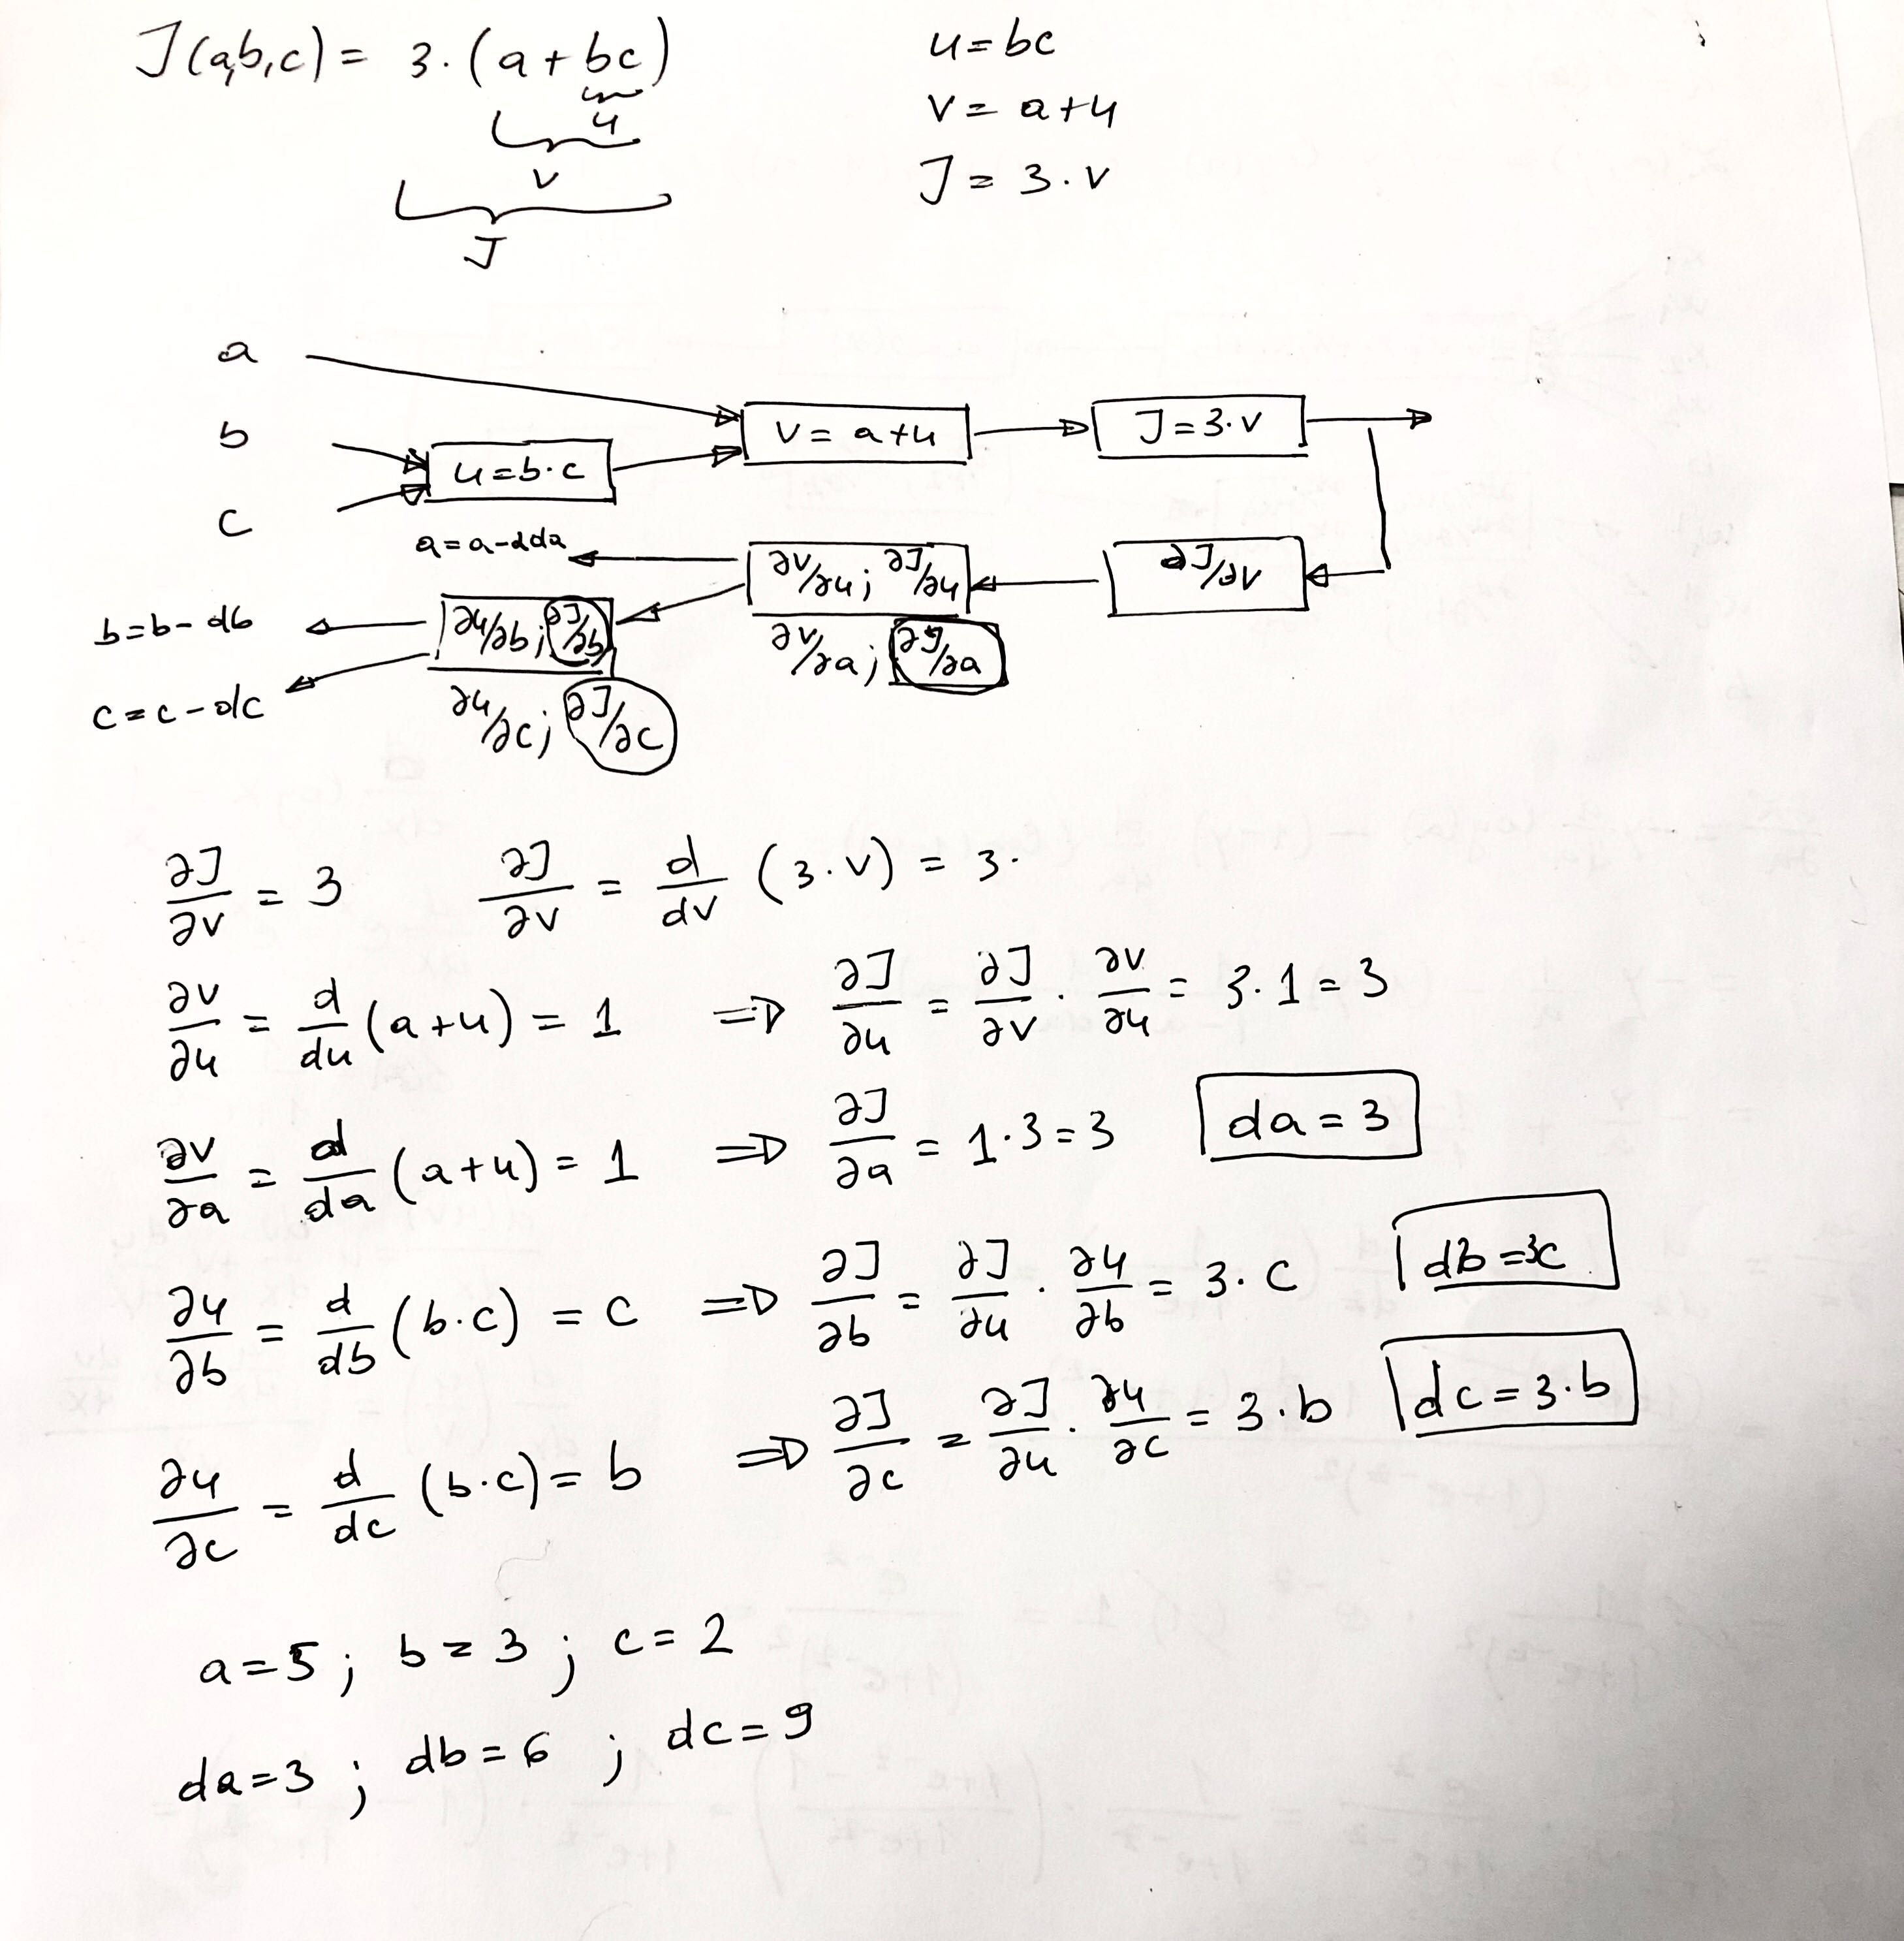 J(a,b,c) = 3·(a+bc)
u
v
J
u=bc
v= a+u
J = 3·v
a
b
c
u=b·c
v= a+u
J=3·v
a=a-αda
∂v/∂u; ∂J/∂u
∂J/∂v
b=b-db
∂u/∂b; ∂J/∂b
∂v/∂a; ∂J/∂a
c=c-dc
∂u/∂c; ∂J/∂c
∂J/∂v = 3 ∂J/∂v = d/dv (3·v) = 3·
∂v/∂u = d/du (a+u) = 1 => ∂J/∂u = ∂J/∂v · ∂v/∂u = 3·1=3
∂v/∂a = d/da (a+u) = 1 => ∂J/∂a = 1·3=3 da=3
∂u/∂b = d/db (b·c) = c => ∂J/∂b = ∂J/∂u · ∂u/∂b = 3·c db=3c
∂u/∂c = d/dc (b·c) = b => ∂J/∂c = ∂J/∂u · ∂u/∂c = 3·b dc=3·b
a=5; b=3; c=2
da=3; db=6; dc=9